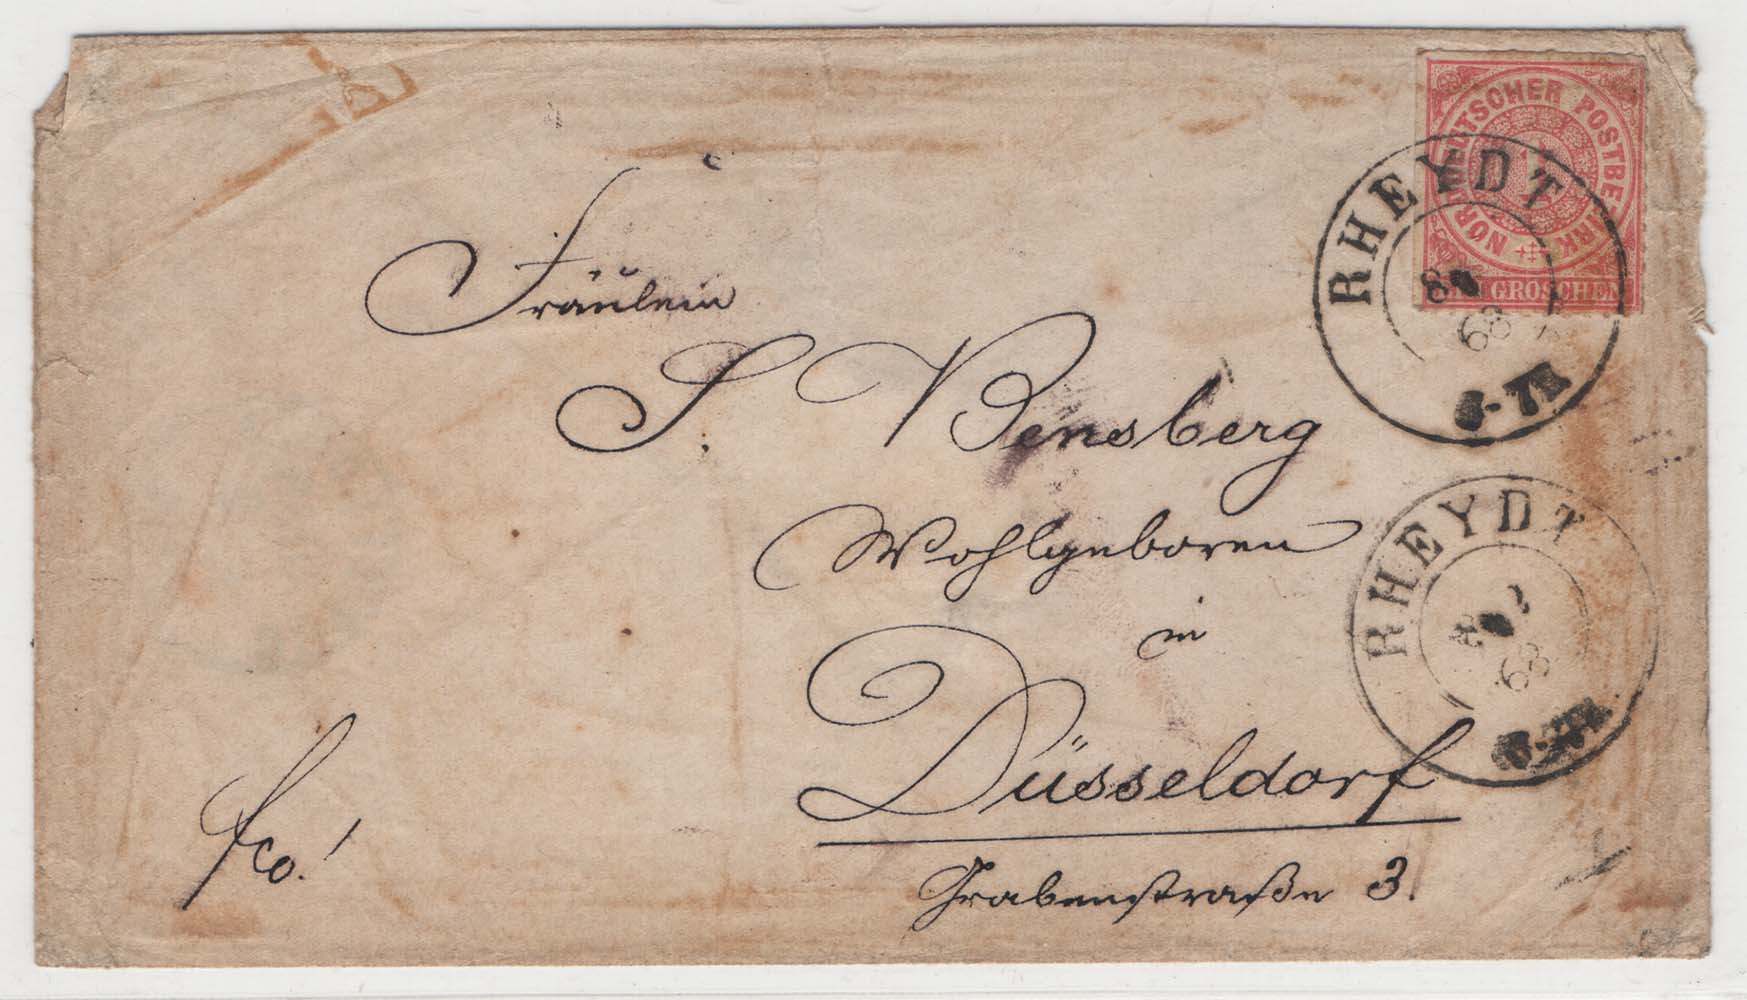 NORDDEUTSCHER POSTBEZIRK
GROSCHEN
RHEYDT
68
Fräulein
S. Bensberg
Wohlgeboren
in
Düsseldorf
Grabenstraße 3.
fco!
RHEYDT
68